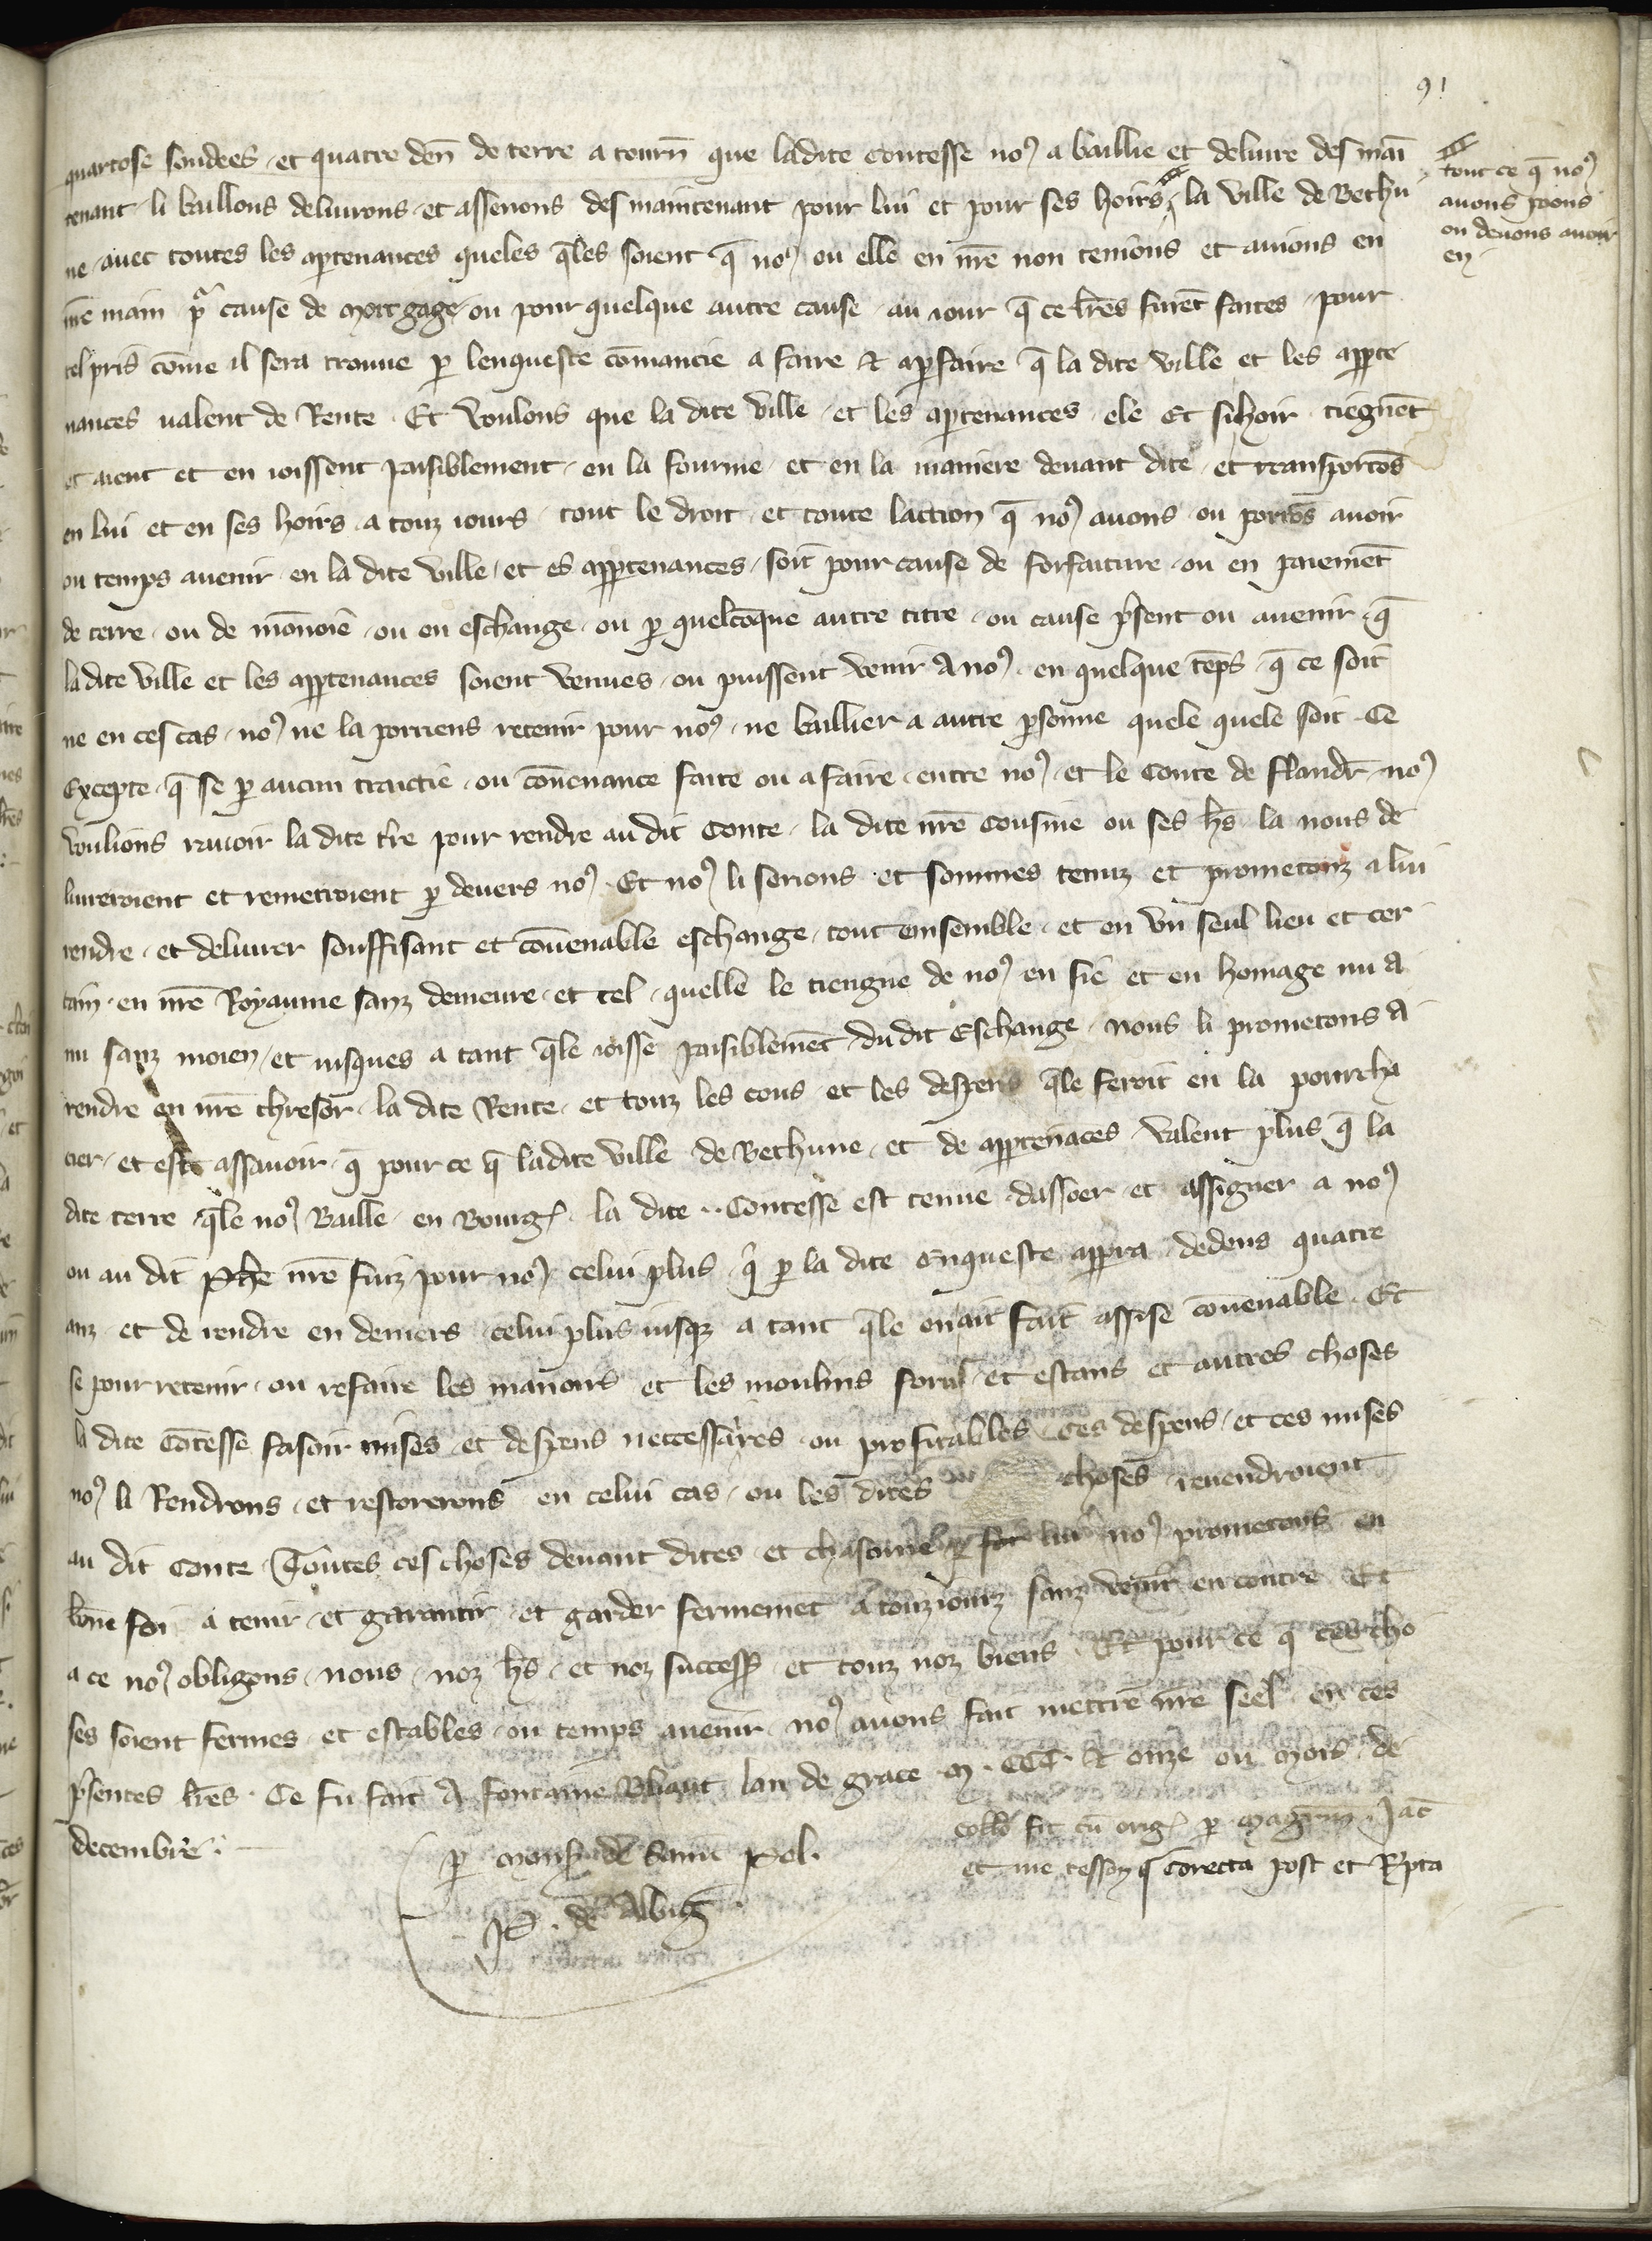 91
quatorse soudees et quatre den̄ de terre a tourn̄ que ladite contesse noꝯ a baillie et deliure des mai
tenant li baillons deliurons et assenons des maintenant pour lui et pour ses hoirs la ville de Bethu
tout ce q̄ noꝯ
auons poons
ou deuons auoir
en
ne auec toutes les aptenances queles q̄les soient q̄ noꝯ ou elle en nr̄e non tenions et auions en
nr̄e main pᵒ cause de mort gage ou pour quelque autre cause au iour q̄ ce lr̄es furēt faites pour
tel pris cōme il sera trouue ꝑ lenqueste cōmancie a faire et a ꝑfaire q̄ la dite ville et les appte
nances ualent de Rente Et voulons que la dite ville et les aptenances ele et si hoir tiegnēt
et aient et en ioissent paisiblement en la fourme et en la maniere deuant dite et transportōs
en lui et en ses hoirs a touz iours tout le droit et toute laction q̄ noꝯ auons ou porriōs auoir
ou temps auenir en la dite ville et es apptenances soit pour cause de forfaiture ou en paiemēt
de terre ou de mōnoie ou en eschange ou ꝑ quelcōque autre titre ou cause p̄sent ou auenir q̄
la dite ville et les apptenances soient venues ou puissent venir a noꝯ en quelque tēps q̄ ce soit
ne en ces cas noꝯ ne la porriens retenir pour noꝯ ne baillier a autre ꝑsonne quele quele soit Ce
excepte q̄ se ꝑ aucun traictie ou cōuenance faite ou a faire entre noꝯ et le Conte de Flandr̄ noꝯ
voulions rauoir la dite tr̄re pour rendre au dit Conte la dite nr̄e cousine ou ses hr̄s la nous de
liureroient et remetroient ꝑ deuers noꝯ Et noꝯ li serions et sommes tenuz et prometons a lui
rendre et deliurer souffisant et cōuenable eschange tout ensemble et en vn seul lieu et cer
tain en nr̄e Royaume sanz demeure et tel quelle le tiengne de noꝯ en fie et en homage nu a
nu sanz moien et iusques a tant q̄le ioisse paisiblemēt du dit Eschange nous li prometons a
rendre en nr̄e thresor la dite Rente et touz les cous et les despens q̄le feroit en la pourcha
cier et est assauoir q̄ pour ce q̄ ladite ville de Bethune et de apptenāces valent plus q̄ la
dite terre q̄le noꝯ Baille en Bourḡ la dite Contesse est tenue dassoer et assigner a noꝯ
ou au dit Phe nr̄e fuiz pour noꝯ celui plus q̄ ꝑ la dite enqueste apparra dedens quatre
anz et de rendre en deniers celui plus iusq̄ a tant q̄le en ait fait assise cōuenable Et
se pour retenir ou refaire les manoirs et les moulins fours et estans et autres choses
la dite Cōtesse fasoit mises et despens neccessaires ou profitables ces despens et ces mises
noꝯ li Rendrons et restorerons en celui cas ou les dites choses reuendroient
au dit Conte Toutes ces choses deuant dites et chascune noꝯ prometons en
bōne foi a tenir et garantir et garder fermemēt a touz iourz sanz venir encontre Et
a ce noꝯ obligons nous noz hr̄s et noz success̄ et touz noz biens Et pour ce q̄ ces cho
ses soient fermes et estables ou temps auenir noꝯ auons fait mettre nr̄e seel en ces
p̄sentes lr̄es Ce fu fait A Fontaine Bliaut lan de grace m CCC et onze ou mois de
decembre
ꝑ mons̄ de Saint Pol
Jd. de Albiḡ
coll̄o fit cū oriḡ ꝑ Magr̄m Jac̄
et me tesson q̄ corecta post et Rp̄ta